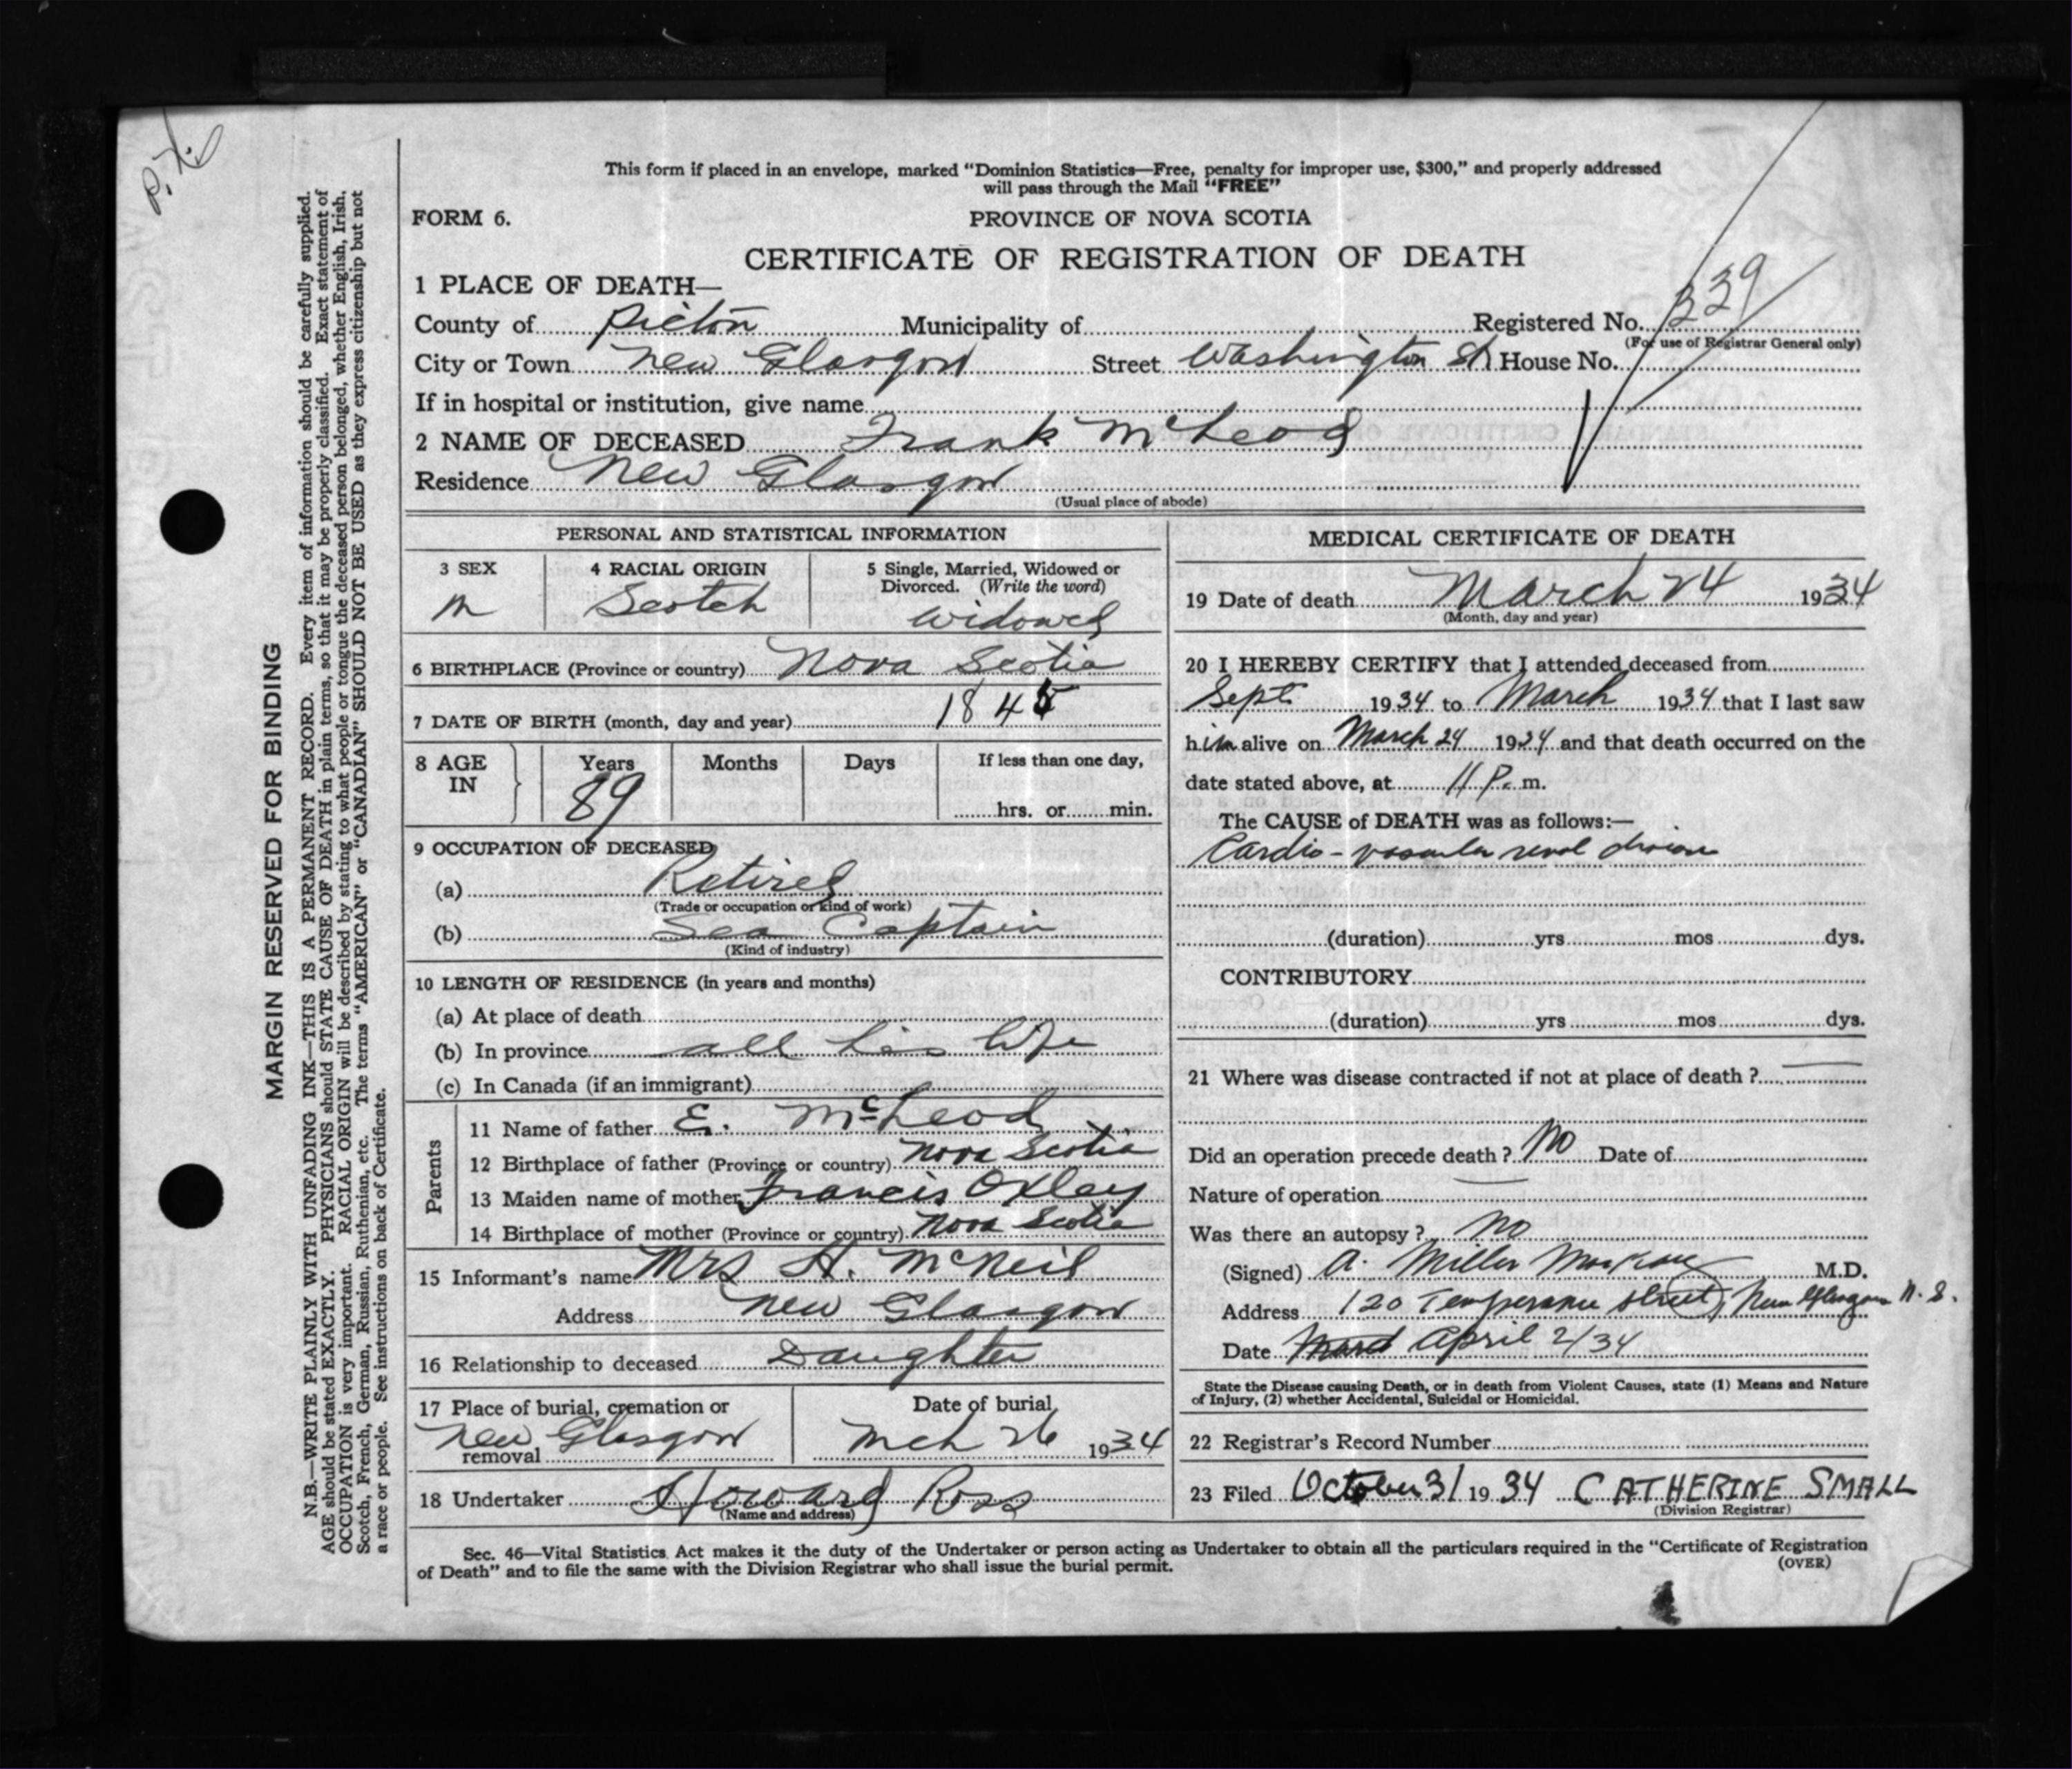 P.X.
This form if placed in an envelope, marked “Dominion Statistics—Free, penalty for improper use, $300,” and properly addressed
will pass through the Mail “FREE”
FORM 6.
PROVINCE OF NOVA SCOTIA
CERTIFICATE OF REGISTRATION OF DEATH
1 PLACE OF DEATH—
County of Pictou Municipality of Registered No. 339
(For use of Registrar General only)
City or Town New Glasgow Street Washington St House No.
If in hospital or institution, give name
2 NAME OF DECEASED Frank McLeod
Residence New Glasgow
(Usual place of abode)
PERSONAL AND STATISTICAL INFORMATION
3 SEX
M
4 RACIAL ORIGIN
Scotch
5 Single, Married, Widowed or
Divorced. (Write the word)
Widowed
6 BIRTHPLACE (Province or country) Nova Scotia
7 DATE OF BIRTH (month, day and year) 1845
8 AGE IN
Years Months Days If less than one day,
89
hrs. or min.
9 OCCUPATION OF DECEASED
(a) Retired
(Trade or occupation or kind of work)
(b) Sea Captain
(Kind of industry)
10 LENGTH OF RESIDENCE (in years and months)
(a) At place of death
(b) In province all his life
(c) In Canada (if an immigrant)
Parents
11 Name of father E. McLeod
12 Birthplace of father (Province or country) Nova Scotia
13 Maiden name of mother Francis Oxley
14 Birthplace of mother (Province or country) Nova Scotia
15 Informant's name Mrs H. McNeil
Address New Glasgow
16 Relationship to deceased Daughter
17 Place of burial, cremation or
removal New Glasgow
Date of burial
Mch 26 1934
18 Undertaker Howard Ross
(Name and address)
MEDICAL CERTIFICATE OF DEATH
19 Date of death March 24 1934
(Month, day and year)
20 I HEREBY CERTIFY that I attended deceased from
Sept 1934 to March 1934 that I last saw
him alive on March 24 1934 and that death occurred on the
date stated above, at 11 P. m.
The CAUSE of DEATH was as follows:—
Cardio-vascular renal disease
(duration) yrs mos dys.
CONTRIBUTORY
(duration) yrs mos dys.
21 Where was disease contracted if not at place of death ? —
Did an operation precede death ? No Date of
Nature of operation —
Was there an autopsy ? No
(Signed) A. Miller MacKay M.D.
Address 120 Temperance Street, New Glasgow N.S.
Date March April 2/34
State the Disease causing Death, or in death from Violent Causes, state (1) Means and Nature
of Injury, (2) whether Accidental, Suicidal or Homicidal.
22 Registrar's Record Number
23 Filed October 31 1934 CATHERINE SMALL
(Division Registrar)
Sec. 46—Vital Statistics Act makes it the duty of the Undertaker or person acting as Undertaker to obtain all the particulars required in the “Certificate of Registration
of Death” and to file the same with the Division Registrar who shall issue the burial permit.
(OVER)
MARGIN RESERVED FOR BINDING
N.B.—WRITE PLAINLY WITH UNFADING INK—THIS IS A PERMANENT RECORD. Every item of information should be carefully supplied.
AGE should be stated EXACTLY. PHYSICIANS should STATE CAUSE OF DEATH in plain terms, so that it may be properly classified. Exact statement of
OCCUPATION is very important. RACIAL ORIGIN will be described by stating to what people or tongue the deceased person belonged, whether English, Irish,
Scotch, French, German, Russian, Ruthenian, etc. The terms “AMERICAN” or “CANADIAN” SHOULD NOT BE USED as they express citizenship but not
a race or people. See instructions on back of Certificate.